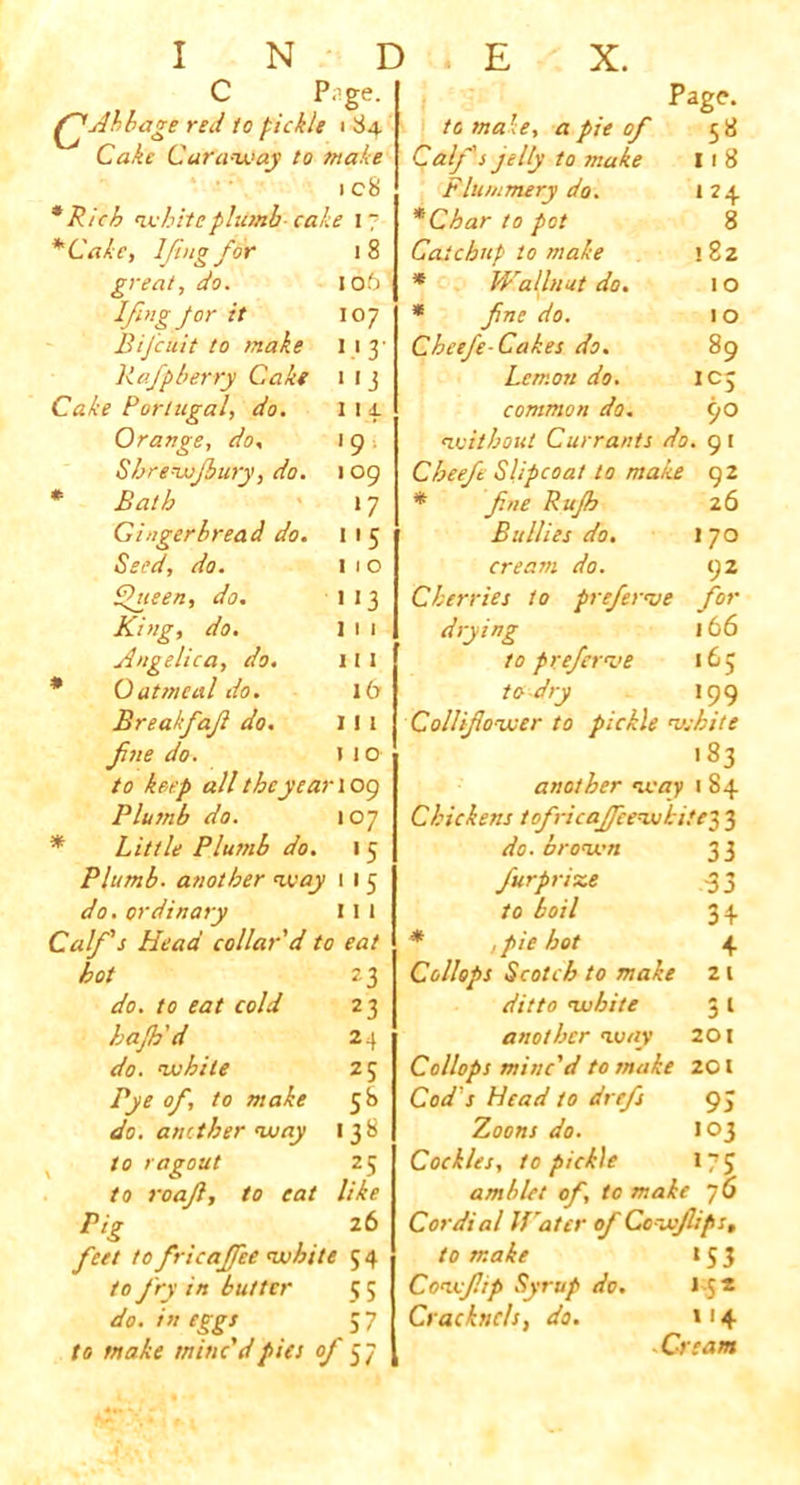 I N D E X.
C Page.
CAbbage red to pickle 184
Cake Caraway to make
108
*Rich white plumb-cake 17
*Cake, Iſing for 18
great, do. 106
Iſing for it 107
Biſcuit to make 113
Raſpberry Cake 113
Cake Portugal, do. 114
Orange, do, 19
Shrewſbury, do. 109
* Bath 17
Gingerbread do. 115
Seed, do. 110
Queen, do. 113
King, do. 111
Angelica, do. 111
* Oatmeal do. 16
Breakfaſt do. 111
fine do. 110
to keep all the year 109
Plumb do. 107
* Little Plumb do. 15
Plumb. another way 115
do. ordinary 111
Calf's Head collar'd to eat
hot 23
do. to eat cold 23
haſh'd 24
do. white 25
Pye of, to make 58
do. another way 138
to ragout 25
to roaſt, to eat like
Pig 26
feet to fricaſſee white 54
to fry in butter 55
do. in eggs 57
to make minc'd pies of 57
Page.
to make, a pie of 58
Calf's jelly to make 118
Flummery do. 124
*Char to pot 8
Catchup to make 182
* Wallnut do. 10
* fine do. 10
Cheeſe-Cakes do. 89
Lemon do. 105
common do. 90
without Currants do. 91
Cheeſe Slipcoat to make 92
* fine Ruſh 26
Bullies do. 170
cream do. 92
Cherries to preſerve for
drying 166
to preſerve 165
to dry 199
Colliflower to pickle white
183
another way 184
Chickens to fricaſſee white 33
do. brown 33
ſurprize 33
to boil 34
* , pie hot 4
Collops Scotch to make 21
ditto white 31
another way 201
Collops minc'd to make 201
Cod's Head to dreſs 95
Zoons do. 103
Cockles, to pickle 175
amblet of, to make 76
Cordial Water of Cowſlips,
to make 153
Cowſlip Syrup do. 152
Cracknels, do. 114
Cream